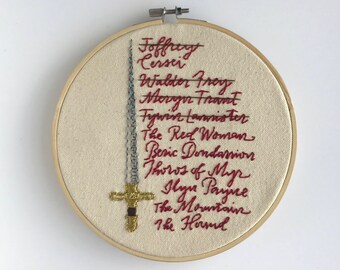 Joffrey
Cersei
Walder Frey
Meryn Trant
Tywin Lannister
The Red Woman
Beric Dondarrion
Thoros of Myr
Ilyn Payne
The Mountain
The Hound